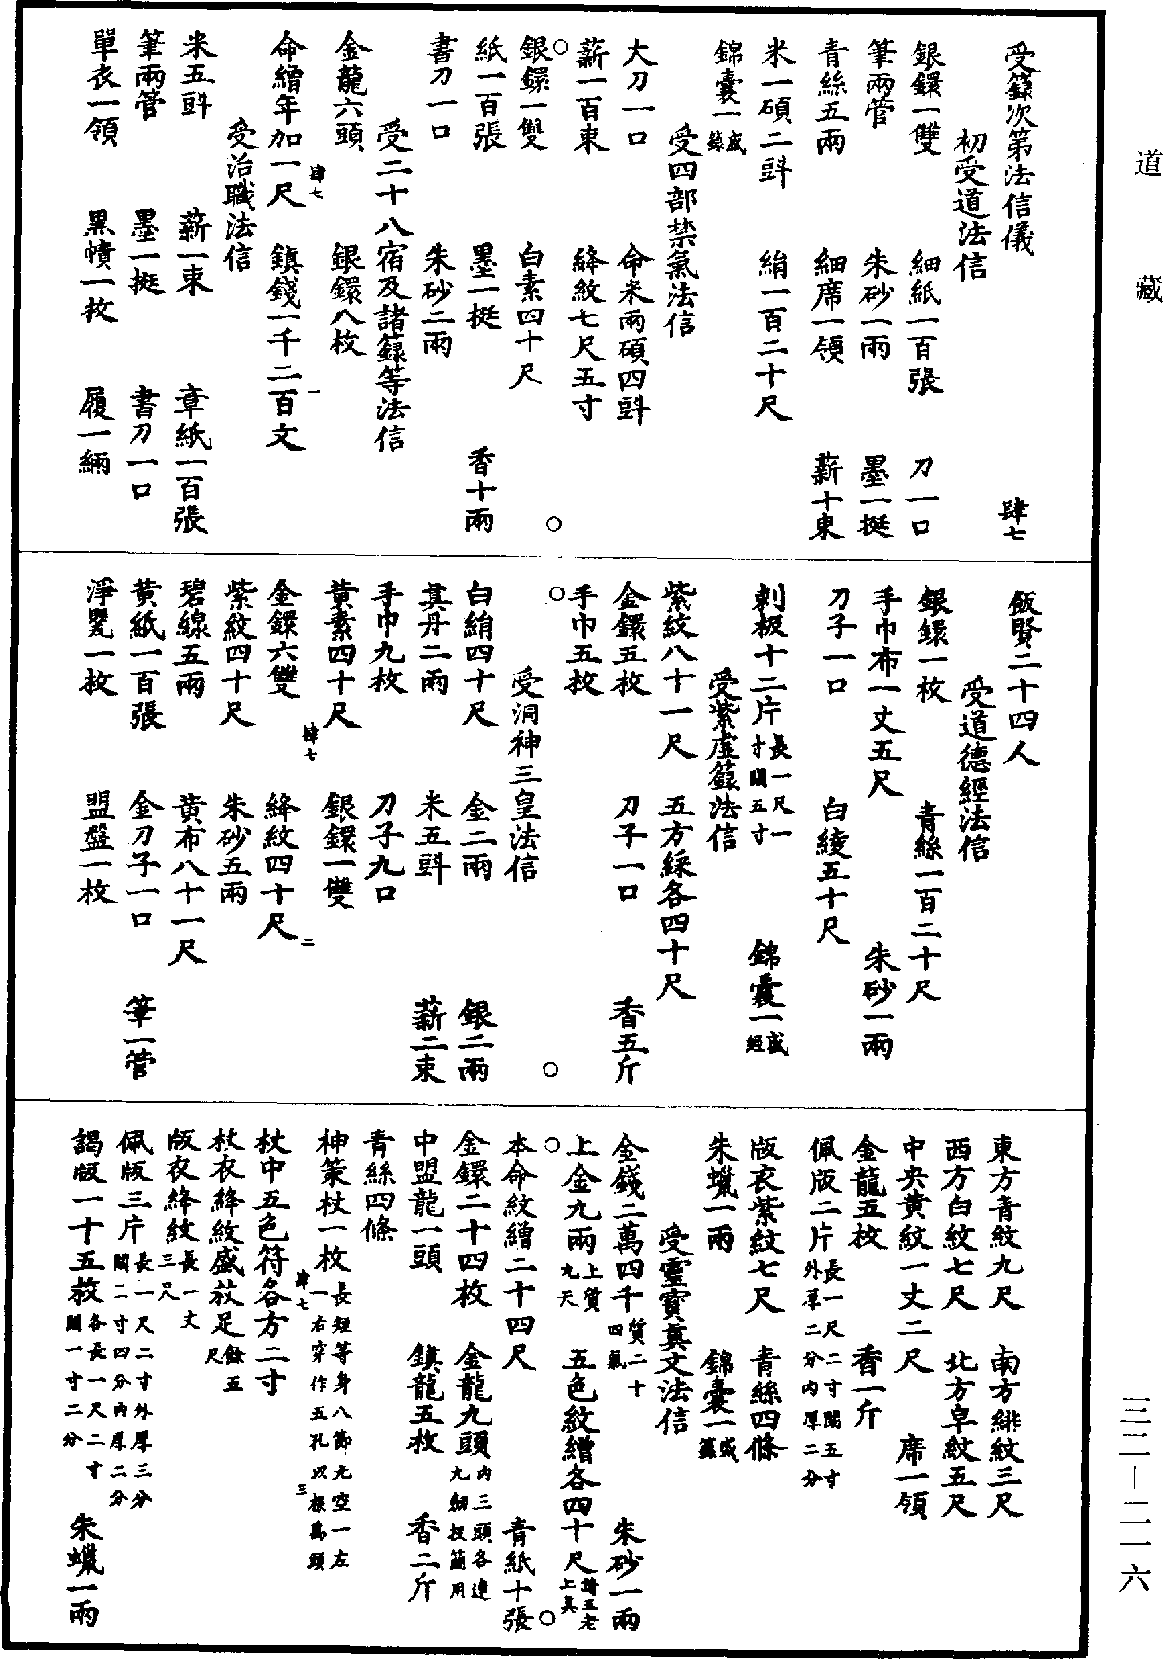 道藏
受籙次第法信儀　肆七
初受道法信
銀鐶一雙　細紙一百張　刀一口
筆兩管　朱砂一兩　墨一挺
青絲五兩　細席一領　薪十束
米一碩二㪷　絹一百二十尺
錦囊一盛籙
受四部禁氣法信
大刀一口　命米兩碩四㪷
薪一百束　絳紋七尺五寸
銀鐶一雙　白素四十尺
紙一百張　墨一挺　香十兩
書刀一口　朱砂二兩
受二十八宿及諸籙等法信
金龍六頭　銀鐶八枚
肆七　一
命繒年加一尺　鎮錢一千二百文
受治職法信
米五㪷　薪一束　章紙一百張
筆兩管　墨一挺　書刀一口
單衣一領　黑幘一枚　履一緉
飯賢二十四人
受道德經法信
銀鐶一枚　青絲一百二十尺
手巾布一丈五尺　朱砂一兩
刀子一口　白綾五十尺
刺板十二片長一尺一寸闊五寸　錦囊一盛經
受紫虛籙法信
紫紋八十一尺　五方綵各四十尺
金鐶五枚　刀子一口　香五斤
手巾五枚
受洞神三皇法信
白絹四十尺　金二兩　銀二兩
真丹二兩　米五㪷　薪二束
手巾九枚　刀子九口
黃素四十尺　銀鐶一雙
肆七　二
金鐶六雙　絳紋四十尺
紫紋四十尺　朱砂五兩
碧線五兩　黃布八十一尺
黃紙一百張　金刀子一口　筆一管
淨甖一枚　盟盤一枚
東方青紋九尺　南方緋紋三尺
西方白紋七尺　北方皁紋五尺
中央黃紋一丈二尺　席一領
金龍五枚　香一斤
佩版二片長一尺二寸闊五寸外厚二分內厚二分
版衣紫紋七尺　青絲四條
朱蠟一兩　錦囊一盛籙
受靈寶真文法信
金錢二萬四千質二十四氣　朱砂一兩
上金九兩上質九天　五色紋繒各四十尺請五老上真
本命紋繒二十四尺　青紙十張
金鐶二十四枚　金龍九頭內三頭各連九紐投簡用
中盟龍一頭　鎮龍五枚　香二斤
青絲四條
神策杖一枚長短等身八節尤空一左一右穿作五孔以棖萬頭
肆七　三
杖中五色符各方二寸
杖衣絳紋盛杖足餘五尺
版衣絳紋長一丈三尺
佩版三片長一尺二寸外厚三分闊二寸四分內厚二分
謁版一十五枚各長一尺二寸闊一寸二分　朱蠟一兩
三二—二一六